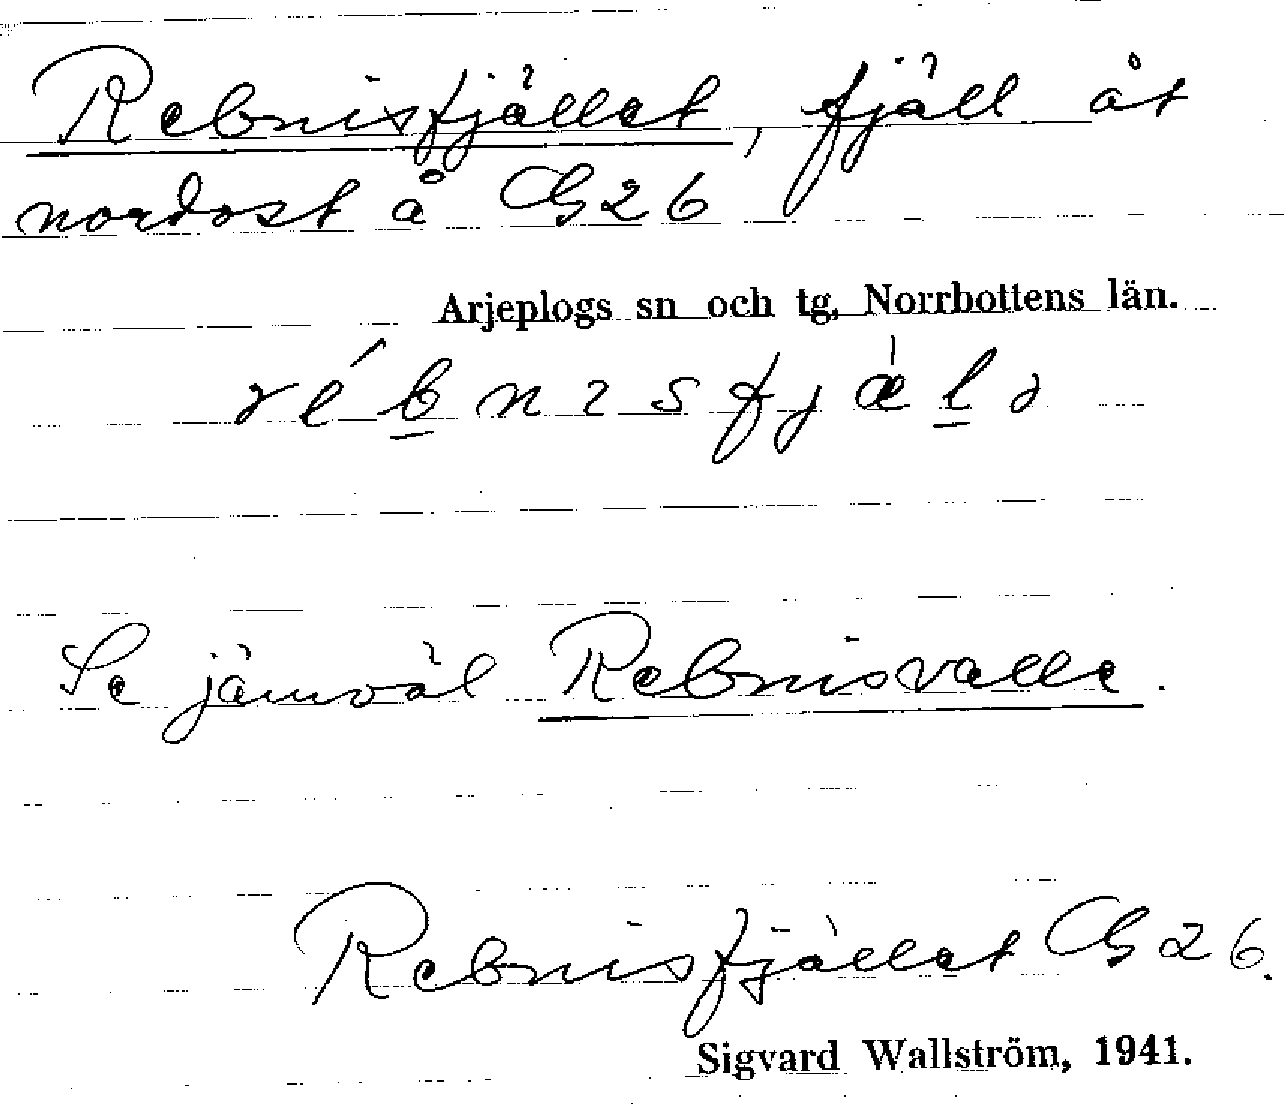 Rebnisfjället, fjäll åt
nordost å G26
Arjeplogs sn och tg, Norrbottens län.
rébnisfjæ̀lə
Se jämväl Rebnisvalle.
Rebnisfjället G26.
Sigvard Wallström, 1941.